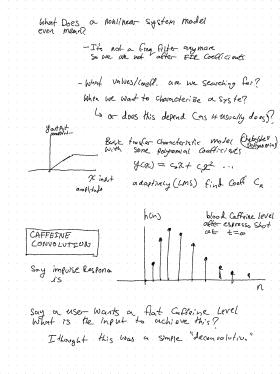 What Does a nonlinear system model
even mean?
- It's not a freq filter anymore
So we are not after FIR Coefficients
- What values/coeff. are we searching for?
When we want to characterize a syste?
↳ or does this depend (as it usually does)?
y output
x input
amplitude
Basic transfer characteristic model (Chebyshev Polynomials)
with some polynomial coefficients
y(x) = c₁x + c₂x² ...
adaptively (LMS) find Coeff Cₖ
h(n)
blood Caffeine level
after espresso shot
at t=0
CAFFEINE
CONVOLUTION
Say impulse Response
is
n
Say a user wants a flat Caffeine Level
What is the input to achieve this?
I thought this was a simple "deconvolution"